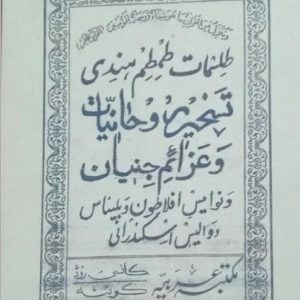 طلسمات طمطم هندی
تسخیر روحانیات
وعزائم جنیان
ونوامیس افلاطون وبلیناس
دوالیس اسکندرانی
مکتبہ عربیہ کانسی روڈ کوئٹہ